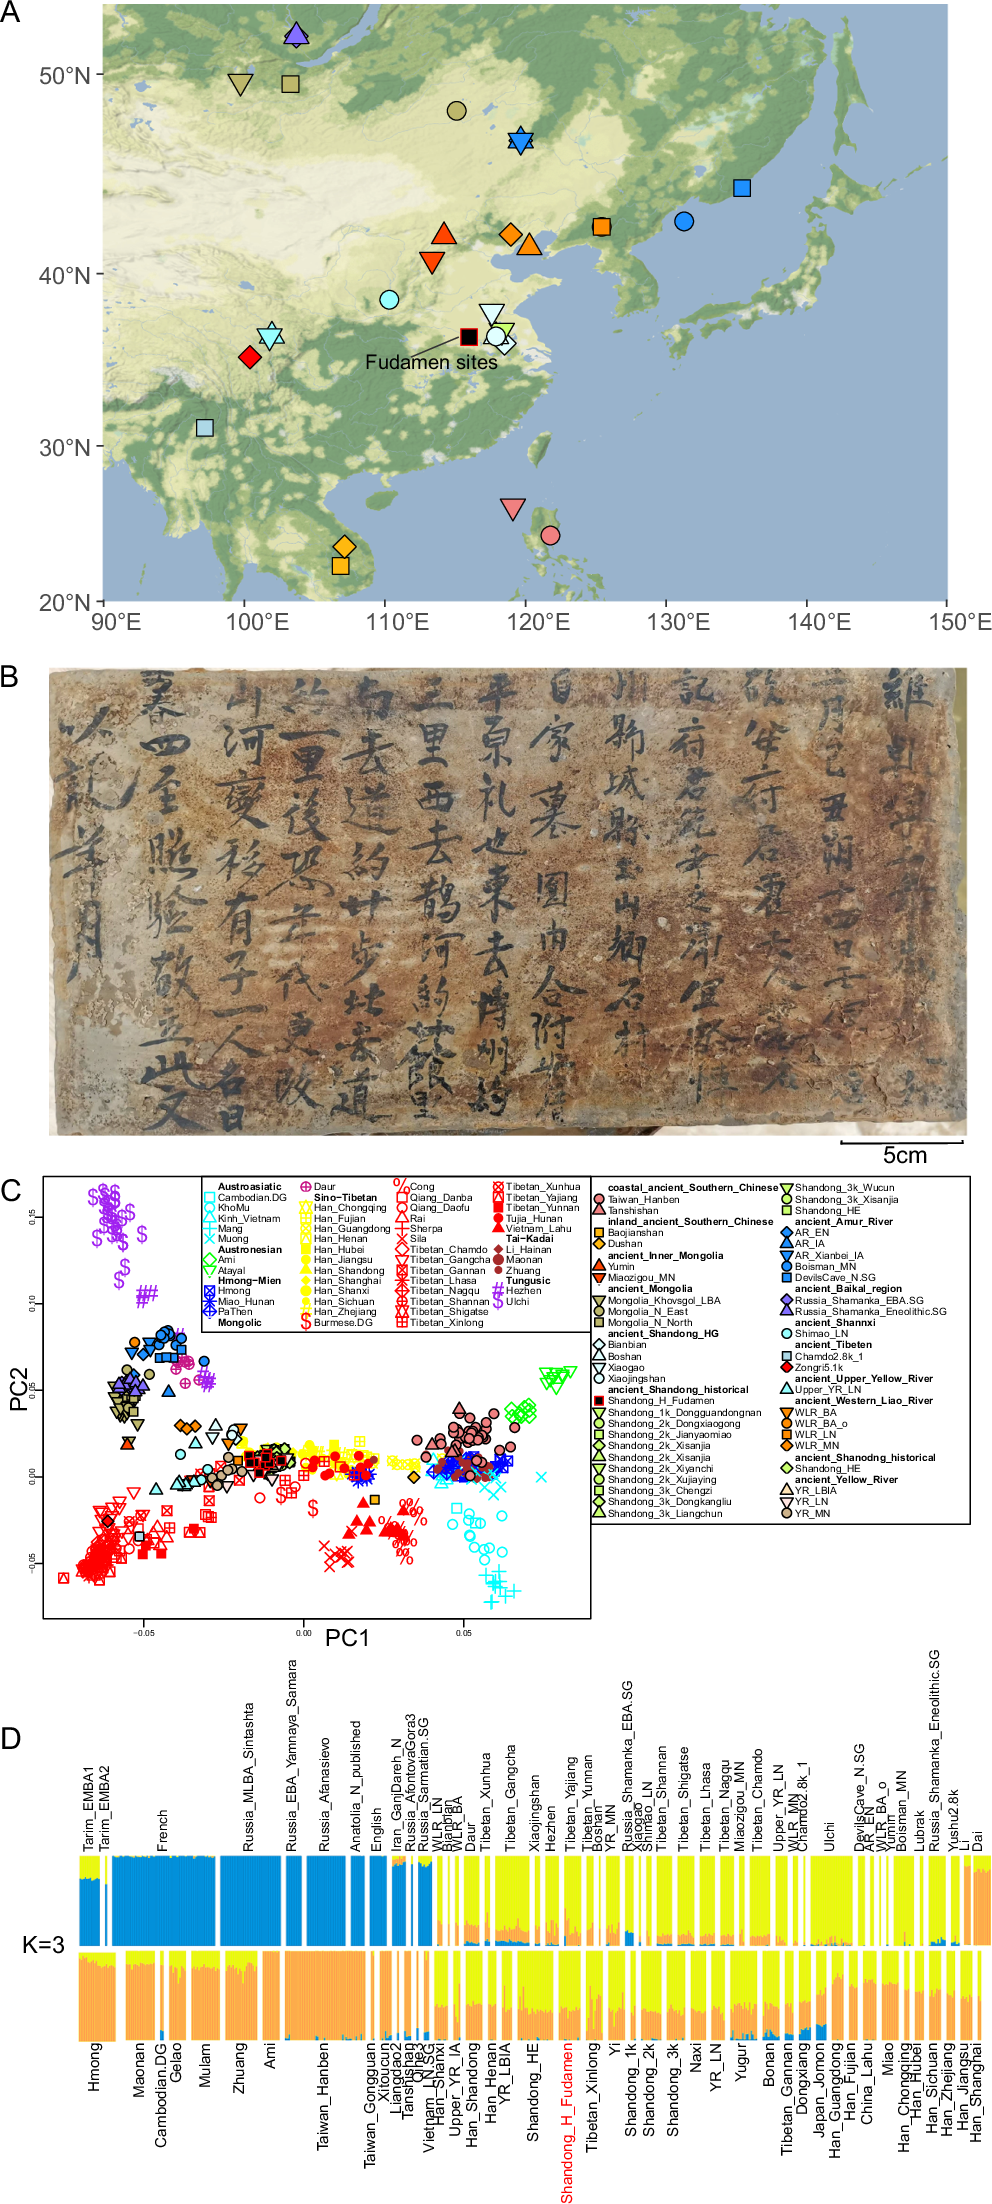 A
50°N
40°N
30°N
20°N
90°E
100°E
110°E
120°E
130°E
140°E
150°E
Fudamen sites
B
維
記
府
君
縣
城
鄉
石
村
家
墓
圍
內
合
附
平
原
礼
也
東
去
博
州
約
三
里
西
去
鵲
河
約
去
道
約
廿
步
北
至
道
一
里
後
恐
年
代
更
改
山
河
變
移
有
子
一
人
名
曰
四
至
照
驗
故
立
此
文
5cm
C
PC2
PC1
0.15
0.10
0.05
0.00
−0.05
−0.05
0.00
0.05
Austroasiatic
Cambodian.DG
KhoMu
Kinh_Vietnam
Mang
Muong
Austronesian
Ami
Atayal
Hmong−Mien
Hmong
Miao_Hunan
PaThen
Mongolic
Daur
Sino−Tibetan
Han_Chongqing
Han_Fujian
Han_Guangdong
Han_Henan
Han_Hubei
Han_Jiangsu
Han_Shandong
Han_Shanghai
Han_Shanxi
Han_Sichuan
Han_Zhejiang
Burmese.DG
Cong
Qiang_Danba
Qiang_Daofu
Rai
Sherpa
Sila
Tibetan_Chamdo
Tibetan_Gangcha
Tibetan_Gannan
Tibetan_Lhasa
Tibetan_Nagqu
Tibetan_Shannan
Tibetan_Shigatse
Tibetan_Xinlong
Tibetan_Xunhua
Tibetan_Yajiang
Tibetan_Yunnan
Tujia_Hunan
Vietnam_Lahu
Tai−Kadai
Li_Hainan
Maonan
Zhuang
Tungusic
Hezhen
Ulchi
coastal_ancient_Southern_Chinese
Taiwan_Hanben
Tanshishan
inland_ancient_Southern_Chinese
Baojianshan
Dushan
ancient_Inner_Mongolia
Yumin
Miaozigou_MN
ancient_Mongolia
Mongolia_Khovsgol_LBA
Mongolia_N_East
Mongolia_N_North
ancient_Shandong_HG
Bianbian
Boshan
Xiaogao
Xiaojingshan
ancient_Shandong_historical
Shandong_H_Fudamen
Shandong_1k_Dongguandongnan
Shandong_2k_Dongxiaogong
Shandong_2k_Jianyaomiao
Shandong_2k_Xisanjia
Shandong_2k_Xisanjia
Shandong_2k_Xiyanchi
Shandong_2k_Xujiaying
Shandong_3k_Chengzi
Shandong_3k_Dongkangliu
Shandong_3k_Liangchun
Shandong_3k_Wucun
Shandong_3k_Xisanjia
Shandong_HE
ancient_Amur_River
AR_EN
AR_IA
AR_Xianbei_IA
Boisman_MN
DevilsCave_N.SG
ancient_Baikal_region
Russia_Shamanka_EBA.SG
Russia_Shamanka_Eneolithic.SG
ancient_Shannxi
Shimao_LN
ancient_Tibeten
Chamdo2.8k_1
Zongri5.1k
ancient_Upper_Yellow_River
Upper_YR_LN
ancient_Western_Liao_River
WLR_BA
WLR_BA_o
WLR_LN
WLR_MN
ancient_Shanodng_historical
Shandong_HE
ancient_Yellow_River
YR_LBIA
YR_LN
YR_MN
D
K=3
Tarim_EMBA1
Tarim_EMBA2
French
Russia_MLBA_Sintashta
Russia_EBA_Yamnaya_Samara
Russia_Afanasievo
Anatolia_N_published
English
Iran_GanjDareh_N
Russia_AfontovaGora3
Russia_Sarmatian.SG
WLR_LN
Bianbian
WLR_BA
Daur
Tibetan_Xunhua
Tibetan_Gangcha
Xiaojingshan
Hezhen
Tibetan_Yajiang
Tibetan_Yunnan
Boshan
YR_MN
Russia_Shamanka_EBA.SG
Xiaogao
Shimao_LN
Tibetan_Shannan
Tibetan_Shigatse
Tibetan_Lhasa
Tibetan_Nagqu
Miaozigou_MN
Tibetan_Chamdo
Upper_YR_LN
WLR_MN
Chamdo2.8k_1
Ulchi
DevilsCave_N.SG
AR_EN
WLR_BA_o
Yumin
Boisman_MN
Lubrak
Russia_Shamanka_Eneolithic.SG
Yushu2.8k
Li
Dai
Hmong
Maonan
Cambodian.DG
Gelao
Mulam
Zhuang
Ami
Taiwan_Hanben
Taiwan_Gongguan
Xitoucun
Liangdao2
Tanshishan
Qihe3
Vietnam_LN.SG
Han_Shanxi
Upper_YR_IA
Han_Shandong
Han_Henan
YR_LBIA
Shandong_HE
Shandong_H_Fudamen
Tibetan_Xinlong
Yi
Shandong_1k
Shandong_2k
Shandong_3k
Naxi
YR_LN
Yugur
Bonan
Tibetan_Gannan
Dongxiang
Japan_Jomon
Han_Guangdong
Han_Fujian
China_Lahu
Miao
Han_Chongqing
Han_Hubei
Han_Sichuan
Han_Zhejiang
Han_Jiangsu
Han_Shanghai